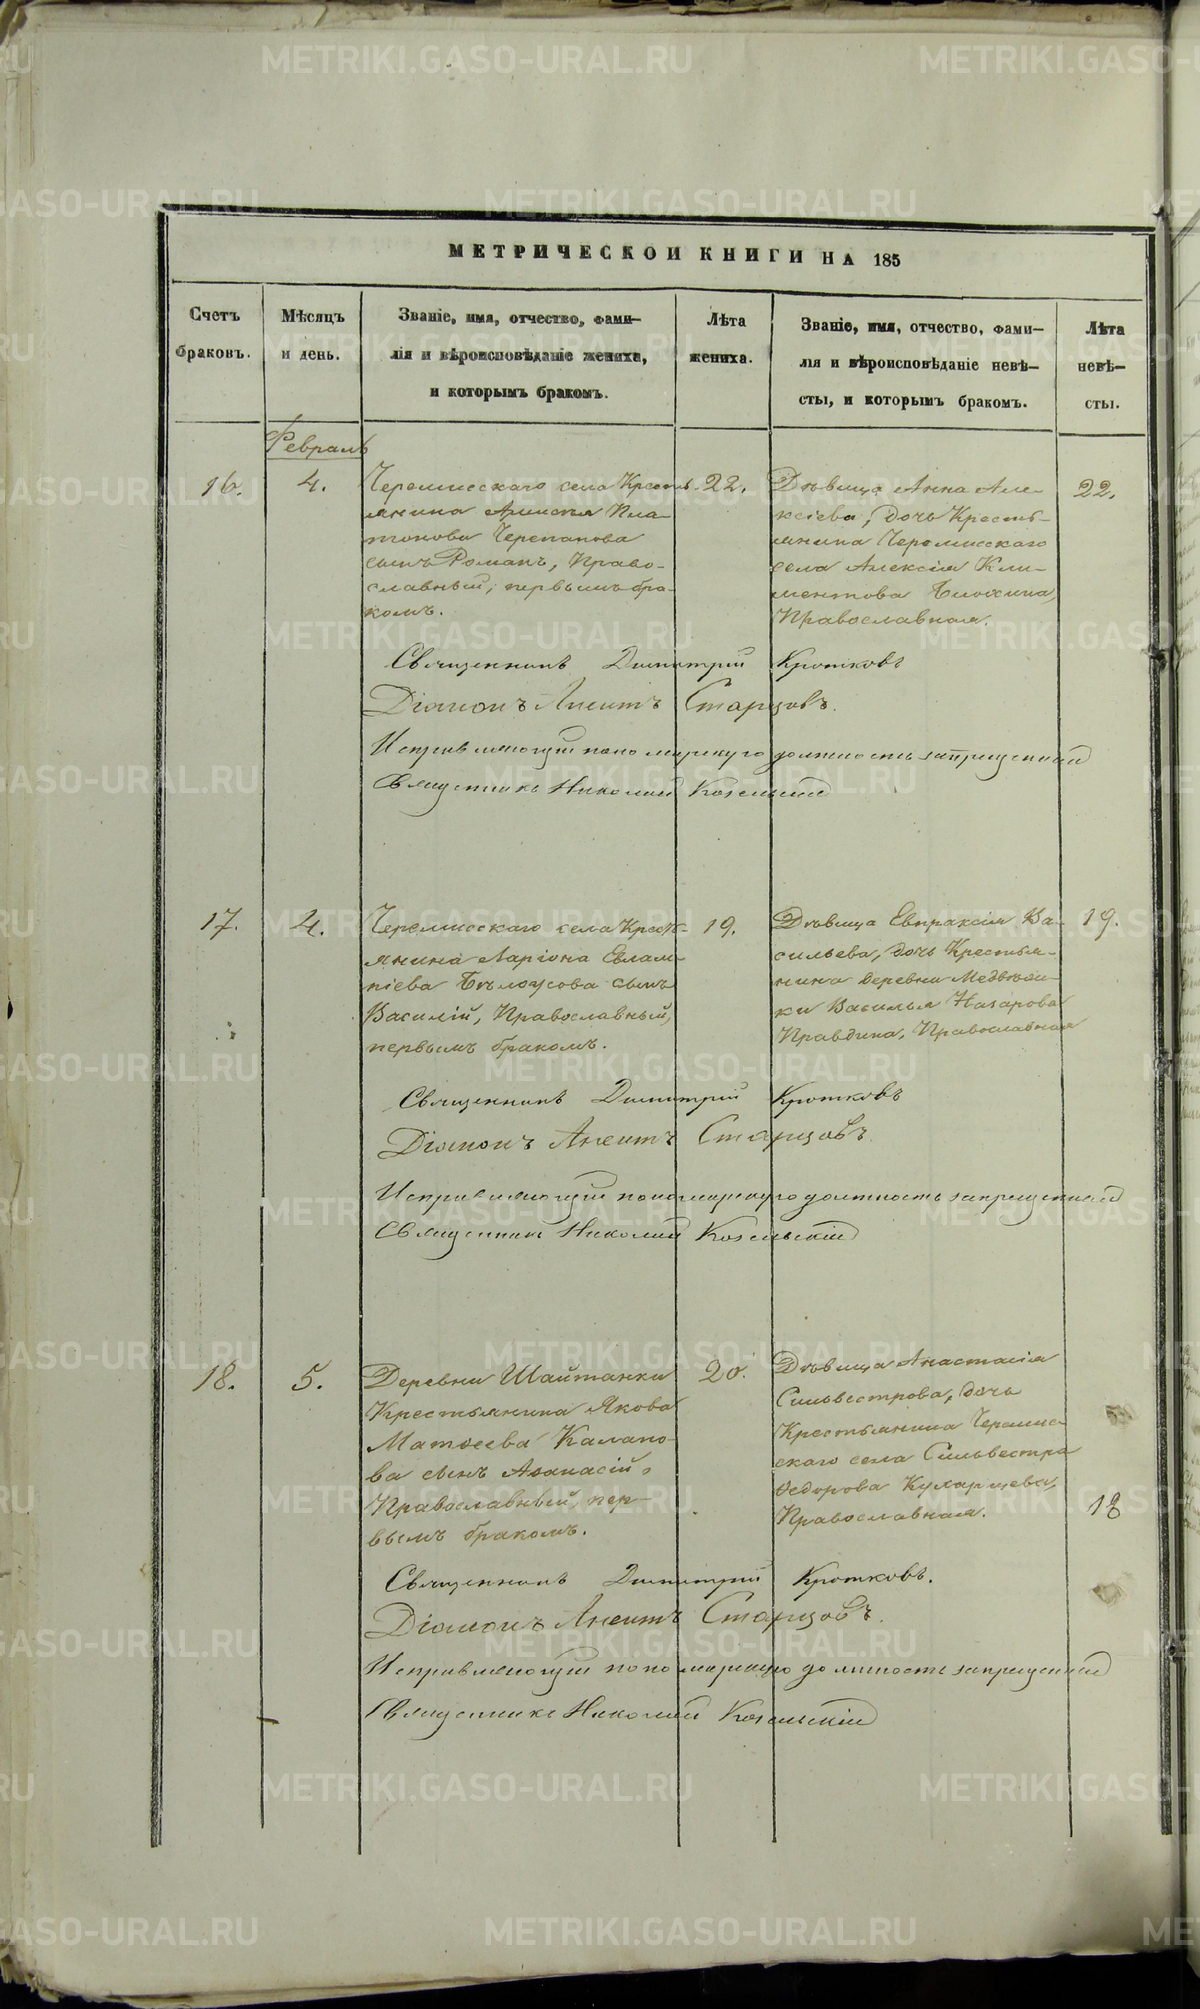 МЕТРИЧЕСКОЙ КНИГИ НА 185
Счетъ браковъ.
Мѣсяцъ и день.
Званіе, имя, отчество, фами-
лія и вѣроисповѣданіе жениха,
и которымъ бракомъ.
Лѣта жениха.
Званіе, имя, отчество, фами-
лія и вѣроисповѣданіе невѣ-
сты, и которымъ бракомъ.
Лѣта невѣ-
сты.
Февраль
16.
4.
Черемисскаго села Кресть-
янина Пла-
тонова Черепанова
сынъ Романъ, Право-
славный, первымъ бра-
комъ.
22.
Дѣвица Анна Але-
ксіева, дочь Кресть-
янина Черемисскаго
села Алексія Кли-
ментова Блохина,
Православная.
22.
Священникъ Димитрій Кротковъ
Діаконъ Аневитъ Старцовъ.
Исправляющій пономарскую должность запрещенный
Священникъ Николай Козельскій
17.
4.
Черемисскаго села Кресть-
янина Ларіона Евлам-
піева Бѣлоусова сынъ
Василій, Православный,
первымъ бракомъ.
19.
Дѣвица Евпраксія Ва-
сильева, дочь Крестья-
нина деревни Медвѣѳи-
ки Василья Назарова
Правдина, Православная
19.
Священникъ Димитрій Кротковъ
Діаконъ Старцовъ.
Исправляющій пономарскую должность запрещенный
Священникъ Николай Козельскій
18.
5.
Деревни Шайтанки
Крестьянина Якова
Матѳеева Калапо-
ва сынъ Аѳанасій,
Православный, пер-
вымъ бракомъ.
20.
Дѣвица Анастасія
Сильвестрова, дочь
Крестьянина Черемис-
скаго села Сильвестра
Ѳедорова Кухарцева,
Православная.
18
Священникъ Димитрій Кротковъ.
Діаконъ Старцовъ.
Исправляющій пономарскую должность запрещенный
Священникъ Николай Козельскій
METRIKI.GASO-URAL.RU